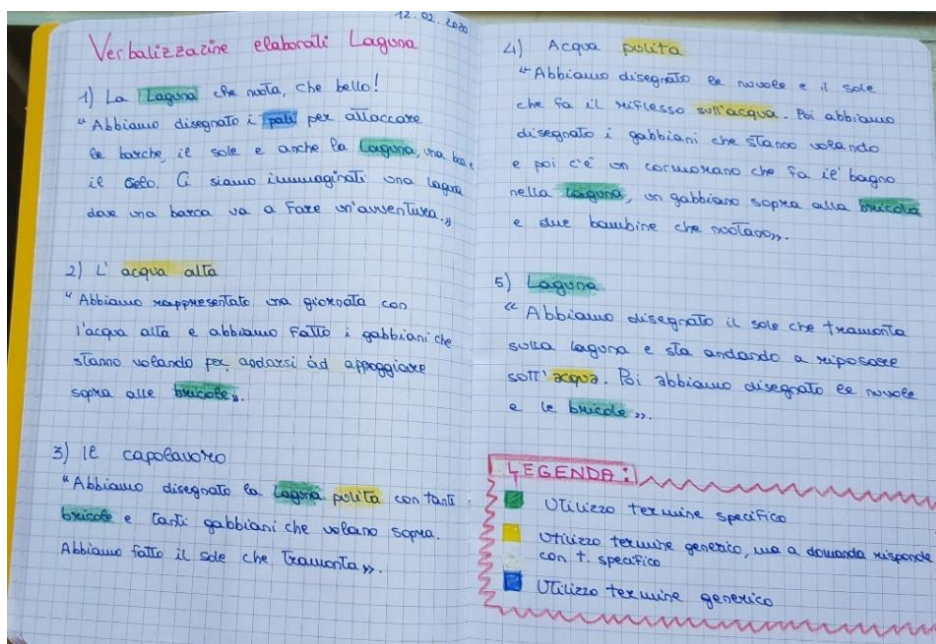 12.02.2020
Verbalizzazine elaborati Laguna
1) La Laguna che nuota, che bello!
"Abbiamo disegnato i pali per attaccare
le barche, il sole e anche la Laguna, una barca e
il cielo. Ci siamo immaginati una laguna
dove una barca va a fare un'avventura.»
2) L' acqua alta
"Abbiamo rappresentato una giornata con
l'acqua alta e abbiamo fatto i gabbiani che
stanno volando per andarsi ad appoggiare
sopra alle bricole».
3) Il capolavoro
"Abbiamo disegnato la laguna pulita con tante
bricole e tanti gabbiani che volano sopra.
Abbiamo fatto il sole che tramonta».
4) Acqua pulita
"Abbiamo disegnato le nuvole e il sole
che fa il riflesso sull'acqua. Poi abbiamo
disegnato i gabbiani che stanno volando
e poi c'è un cormorano che fa il bagno
nella laguna, un gabbiano sopra alla bricola
e due bambine che nuotano».
5) Laguna
"Abbiamo disegnato il sole che tramonta
sulla laguna e sta andando a riposare
sott'acqua. Poi abbiamo disegnato le nuvole
e le bricole».
LEGENDA:
Utilizzo termine specifico
Utilizzo termine generico, ma a domanda risponde
con t. specifico
Utilizzo termine generico